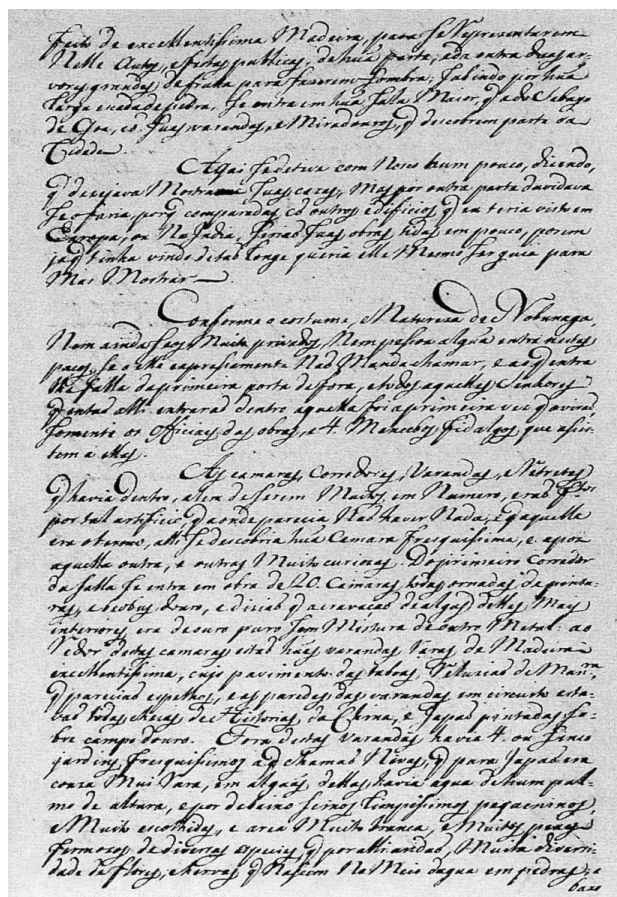 feito de excellentissima Madeira, para se representarem
Nelle Autos, e festas publicas, de hũa parte, e da outra duas ar-
vores grandes de fruita para fazerem sombra; sobindo por hũa
larga escada de pedra, se entra em hũa salla Maior, q̃ a do Sabayo
de Goa, cõ suas varandas, e Miradouros, q̃ descobrem parte da
Cidade
Aqui se deteve com Nosco hum pouco, dizendo,
q̃ desejava Mostrar suas cazas, Mas por outra parte duvidava
se o faria, porq̃ comparadas cõ outros edificios q̃ eu teria visto em
Europa, ou Na India, seriaõ suas obras tidas em pouco, porem
ja q̃ tinha vindo de taõ longe queria elle Mesmo ser guia para
Mas Mostrar
Conforme o costume, e Natureza de Nobunaga,
Nem ainda seos Muito privados, Nem pessoa algũa entra nestes
paços, se o elle expressamente Naõ Manda chamar, e aos q̃ entra
lhe falla da primeira porta de fora, e todos aquelles Senhores
q̃ entaõ alli entraraõ dentro aquella foi a primeira vez q̃ o viraõ,
somente os Officiaes das obras, e 4. Mancebos fidalgos, que asis-
tem a ellas.
As camaras, Corredores, Varandas, e Retretes
q̃ havia dentro, alem de serem Muitos em Numero, eraõ
por tal artificio, q̃ aonde parecia Naõ haver Nada, e q̃ aquelle
era o termo, alli se descobria hũa Camara fresquissima, e apoz
aquella outra, e outras Muito curiozas. Do primeiro Corredor
da salla se entra em obra de 20. Camaras todas ornadas de pintu-
ras, e brobus d'ouro, e diziaõ q̃ a cravaçaõ de algũas dellas Mais
interiores era de ouro puro sem Mistura de outro Metal: ao
redor destas camaras estaõ hũas varandas raras de Madeira
excellentissima, cujo pavimento das taboas reluziaõ de Man.ra
q̃ pareciaõ espelhos, e as paredes das varandas em circuito esta-
vaõ todas cheas de Historias da China, e Japaõ pintadas so-
bre campo d'ouro. Fora destas varandas havia 4. ou sinco
jardins fresquissimos a q̃ chamaõ Nivas, q̃ para Japaõ era
couza Mui rara, em alguns dellas havia agua de hum pal-
mo de altura, e por debaixo seixos limpissimos pequeninos,
e Muito escolhidos, e area Muito branca, e Muitos peixes
fermozos de diversas especies q̃ por alli andaõ, Muita diversi-
dade de flores, e hervas q̃ Naciam No Meio d'agua em pedras, a
baxo